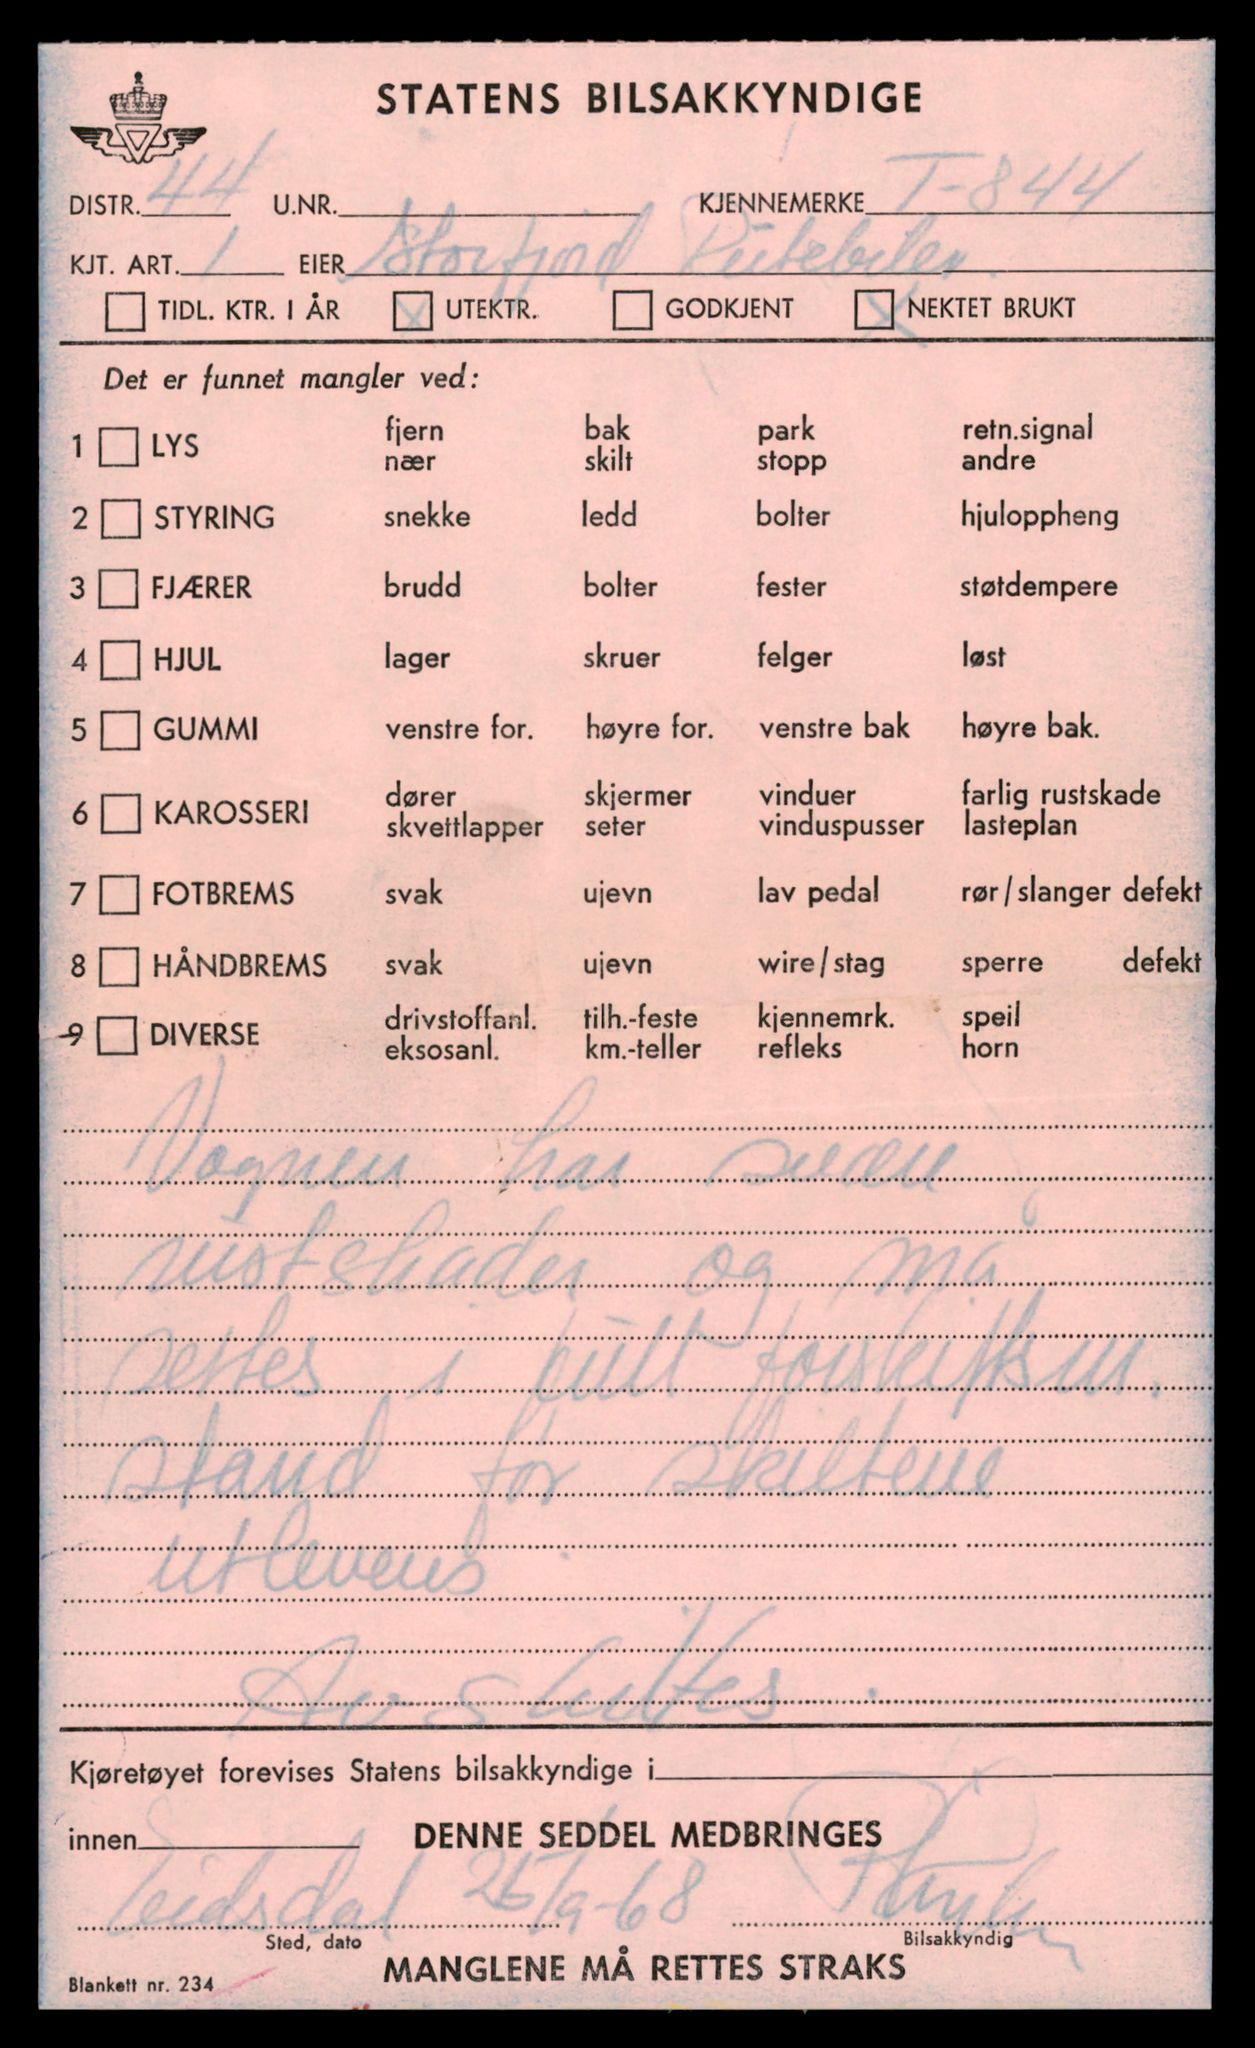 STATENS BILSAKKYNDIGE
DISTR. 44 U.NR. KJENNEMERKE T-844
KJT. ART. 1 EIER Storfjord Rutebiler
TIDL. KTR. I ÅR X UTEKTR. GODKJENT X NEKTET BRUKT
Det er funnet mangler ved:
1 LYS fjern bak park retn.signal
nær skilt stopp andre
2 STYRING snekke ledd bolter hjuloppheng
3 FJÆRER brudd bolter fester støtdempere
4 HJUL lager skruer felger løst
5 GUMMI venstre for. høyre for. venstre bak høyre bak.
6 KAROSSERI dører skjermer vinduer farlig rustskade
skvettlapper seter vinduspusser lasteplan
7 FOTBREMS svak ujevn lav pedal rør/slanger defekt
8 HÅNDBREMS svak ujevn wire/stag sperre defekt
9 DIVERSE drivstoffanl. tilh.-feste kjennemrk. speil
eksosanl. km.-teller refleks horn
Vognen har svære
rustskader og må
settes i full forskriftsm.
stand før skiltene
utleveres.
Avskiltes.
Kjøretøyet forevises Statens bilsakkyndige i
innen DENNE SEDDEL MEDBRINGES
Eidsdal 25/9-68
Sted, dato Bilsakkyndig
MANGLENE MÅ RETTES STRAKS
Blankett nr. 234